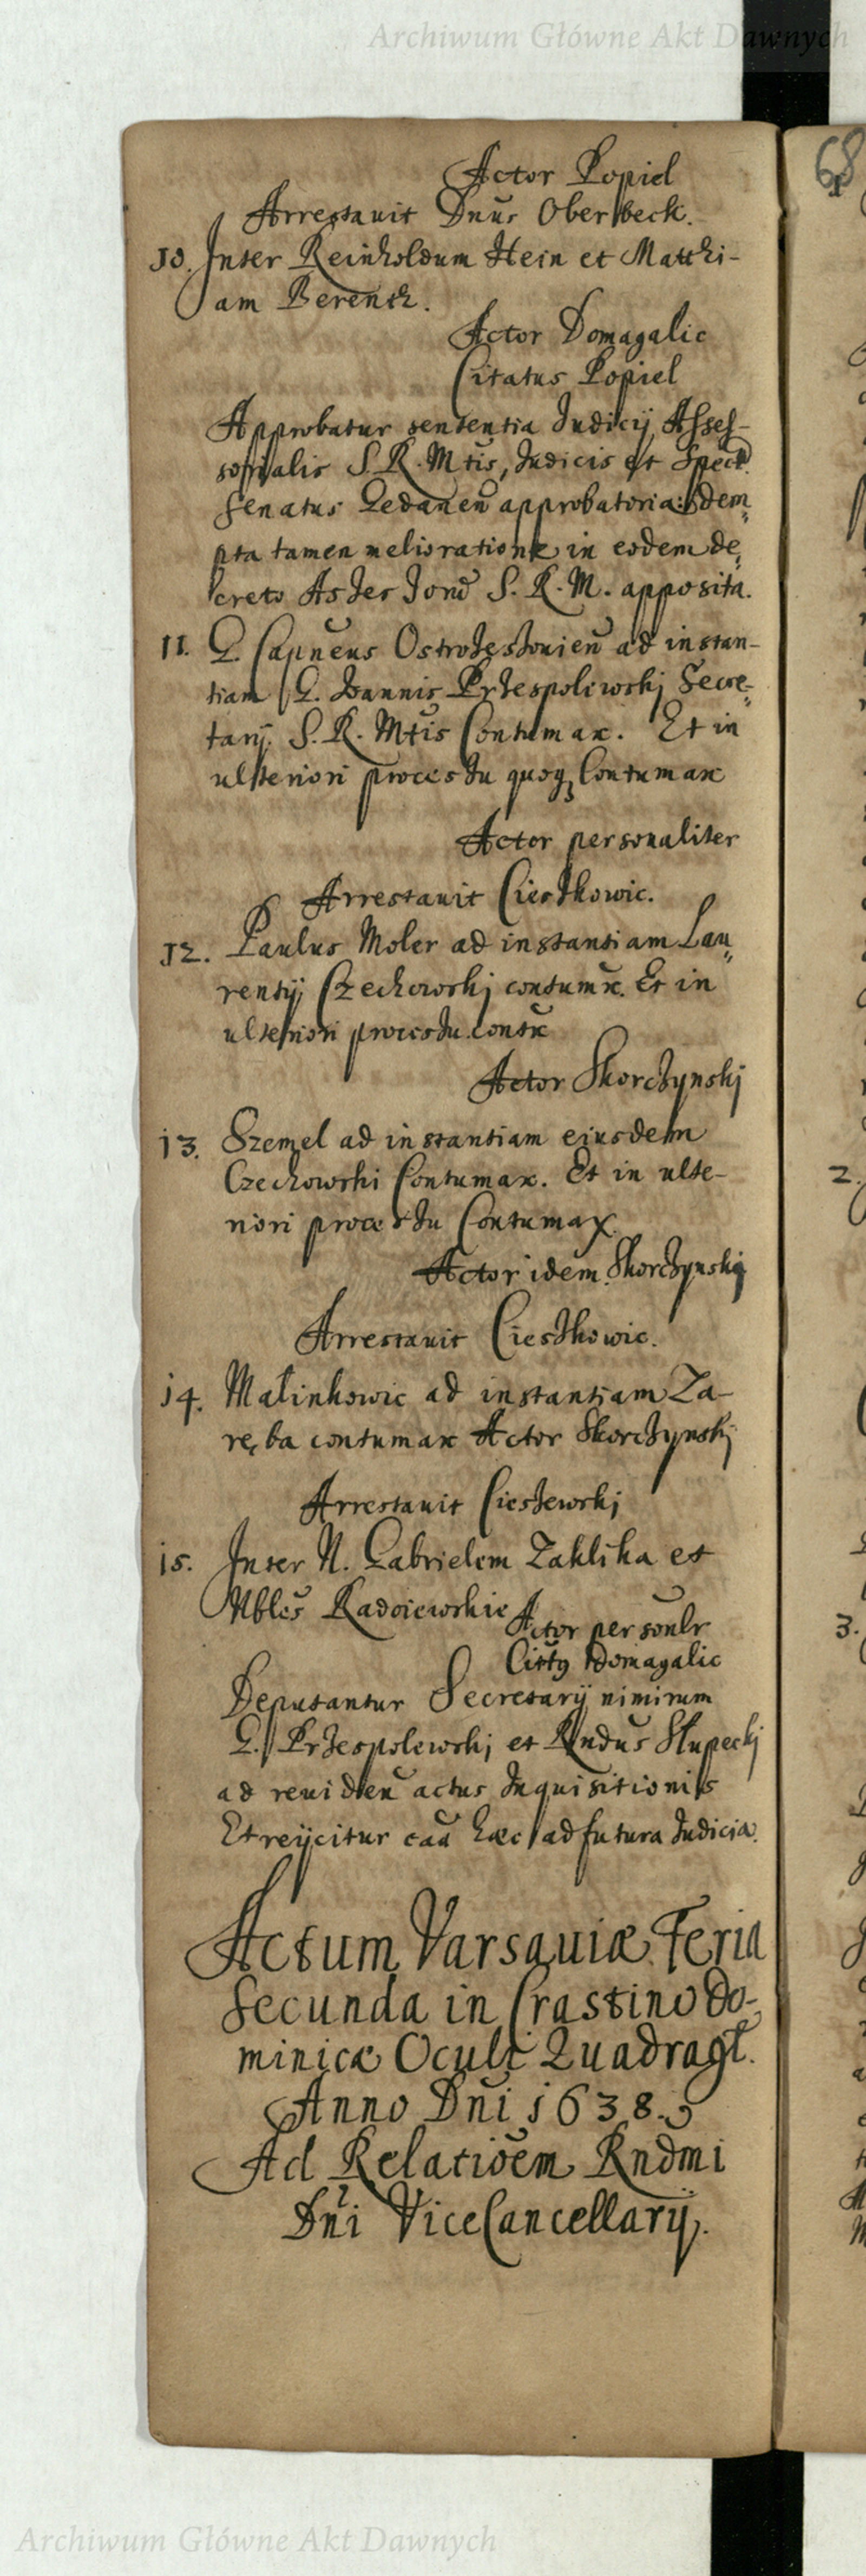 Archiwum Główne Akt Dawnych
Actor Popiel
68
Arrestauit Dnūs Oberbeck.
10. Inter Reinholdum Hein et Matthi-
am Berentz.
Actor Domagalic
Citatus Popiel
Approbatur sententia Iudicij Asses-
sorialis S. R. Mtis, Iudicis et Spect.
Senatus Gedanen̄ approbatoria: dem
pta tamen melioratione in eodem de
creto S. R. M. apposita.
11. G. Ostro ad instan-
tiam G. Ioannis Przespolewskj Secre-
tarij S. R. Mtis Contumax. Et in
ulteriori processu quoq3 Contumax
Actor personaliter
Arrestauit Ciestkowic.
12. Paulus Moler ad instantiam Lau
rentij Czechowskj contumx. Et in
ulteriori processu contx
Actor Skorczynskj
13. Szemel ad instantiam eiusdem
Czechowski Contumax. Et in ulte-
riori processu Contumax
Actor idem Skorczynskj
Arrestauit Ciestkowic.
14. Malinkowic ad instantiam Za-
ręba contumax Actor Skorczynskj
Arrestauit Cieszewskj
2.
15. Inter N. Gabrielem Zaklika et
Nbles Radoiewskie
Actor personlr
Citty Domagalic
3.
Deputantur Secretarij nimirum
G. Przespolewskj et Rndus Słupeckj
ad reuiden̄ actus Inquisitionis
Et reijcitur caā haec ad futura Iudicia.
Actum Varsauiæ Feria
Secunda in Crastino Do-
minicæ Oculi Quadragl.
Anno Dni 1638.
Ad Relatioēm Rndmi
Dni ViceCancellarij.
Archiwum Główne Akt Dawnych